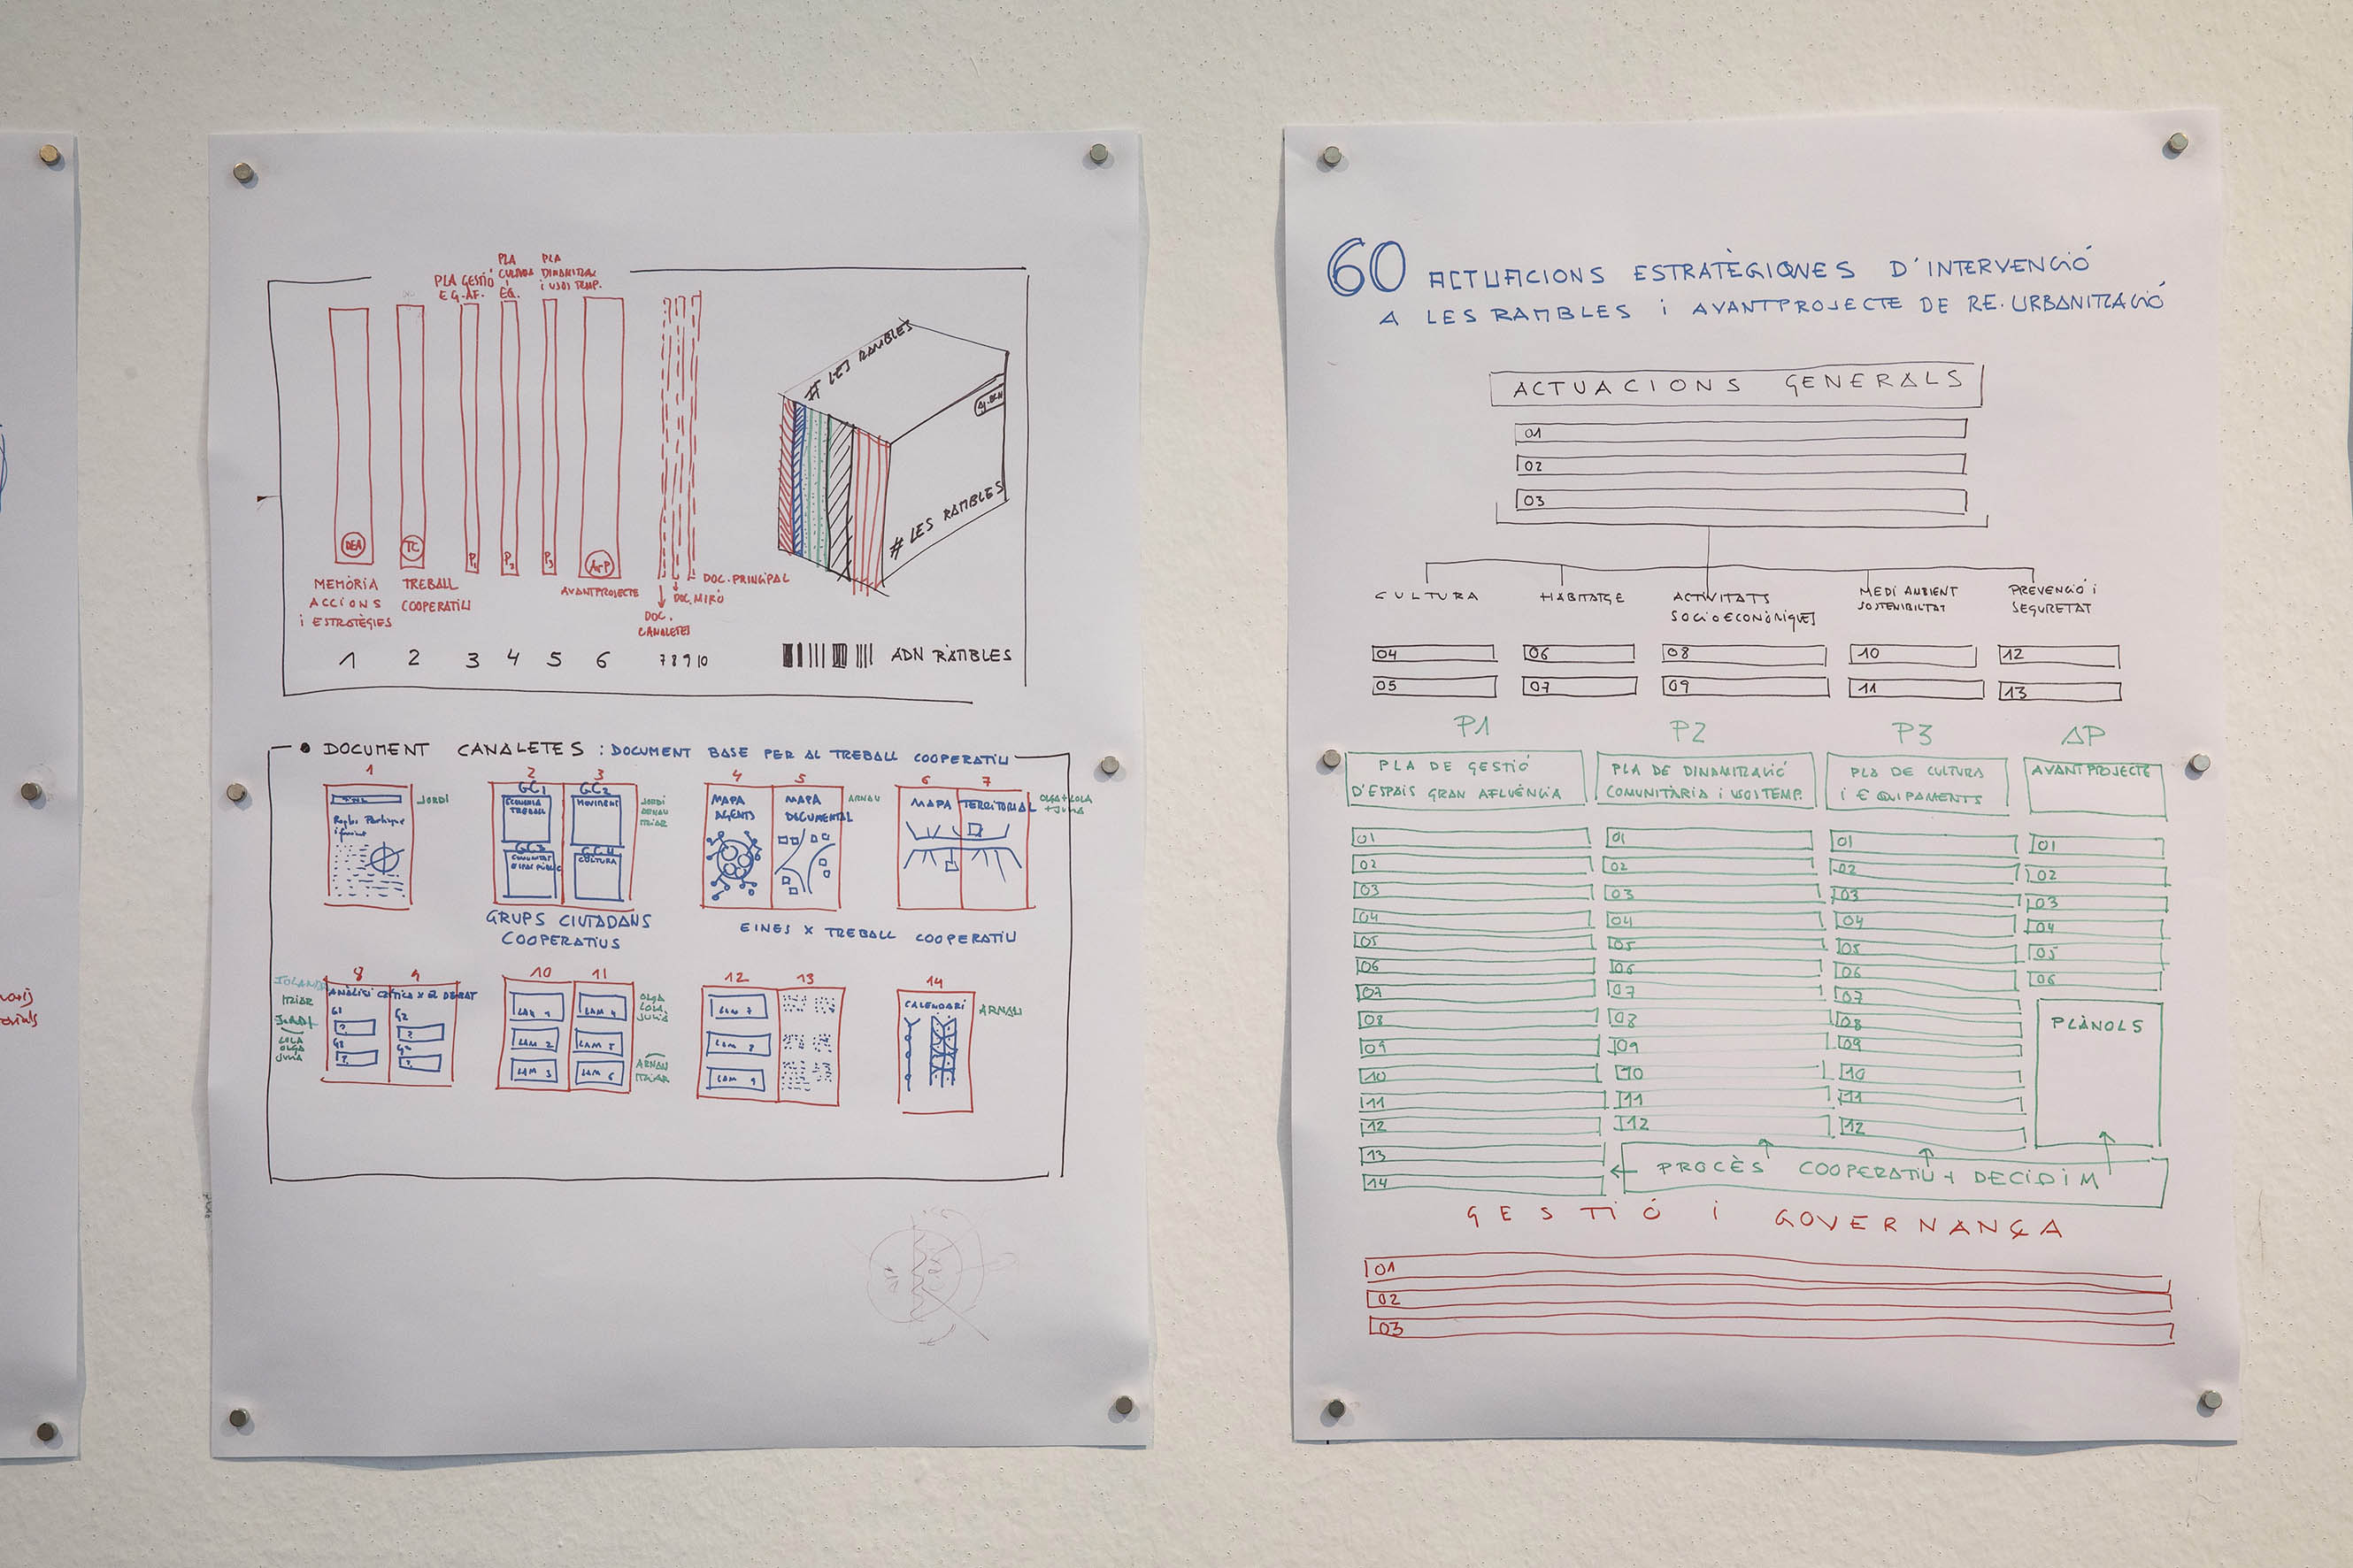 PLA GESTIÓ
E G. AF.
PLA
CULTURA
i
EQ.
PLA
DINAMITZAC
i USOS TEMP.
DEA
TC
P1
P2
P3
AVP
MEMÒRIA
ACCIONS
i ESTRATÈGIES
TREBALL
COOPERATIU
AVANTPROJECTE
DOC. PRINCIPAL
DOC. MIRÓ
DOC.
CANALETES
1 2 3 4 5 6 7 8 9 10
# LES RAMBLES
# LES RAMBLES
ADN RAMBLES
• DOCUMENT CANALETES : DOCUMENT BASE PER AL TREBALL COOPERATIU
1
JORDI
2 3
GC1
ECONOMIA
TREBALL
GC2
MOVIMENT
GC3
GC4
CULTURA
JORDI
ARNAU
ITZIAR
GRUPS CIUTADANS
COOPERATIUS
4 5
MAPA
AGENTS
MAPA
DOCUMENTAL
ARNAU
6 7
MAPA TERRITORIAL
OLGA + LOLA
+ JULIA
EINES X TREBALL COOPERATIU
8 9
ANÀLISI CRÍTICA X EL DEBAT
G1
?
G2
?
G3
?
G4
?
ITZIAR
JORDI
LOLA
OLGA
JULIA
10 11
LAM 1
LAM 2
LAM 3
LAM 4
LAM 5
LAM 6
OLGA
LOLA
JULIA
ARNAU
ITZIAR
12 13
LAM 7
LAM 8
LAM 9
14
CALENDARI
ARNAU
60 ACTUACIONS ESTRATÈGIQUES D'INTERVENCIÓ
A LES RAMBLES i AVANTPROJECTE DE RE.URBANITZACIÓ
ACTUACIONS GENERALS
01
02
03
CULTURA
HABITATGE
ACTIVITATS
SOCIOECONÒMIQUES
MEDI AMBIENT
SOSTENIBILITAT
PREVENCIÓ i
SEGURETAT
04 06 08 10 12
05 07 09 11 13
P1 P2 P3 AP
PLA DE GESTIÓ
D'ESPAIS GRAN AFLUÈNCIA
PLA DE DINAMITZACIÓ
COMUNITÀRIA i USOS TEMP.
PLA DE CULTURA
i EQUIPAMENTS
AVANTPROJECTE
01 01 01 01
02 02 02 02
03 03 03 03
04 04 04 04
05 05 05 05
06 06 06 06
07 07 07
08 08 08
09 09 09
10 10 10
11 11 11
12 12 12
13
14
PLÀNOLS
PROCÈS COOPERATIU + DECIDIM
GESTIÓ i GOVERNANÇA
01
02
03